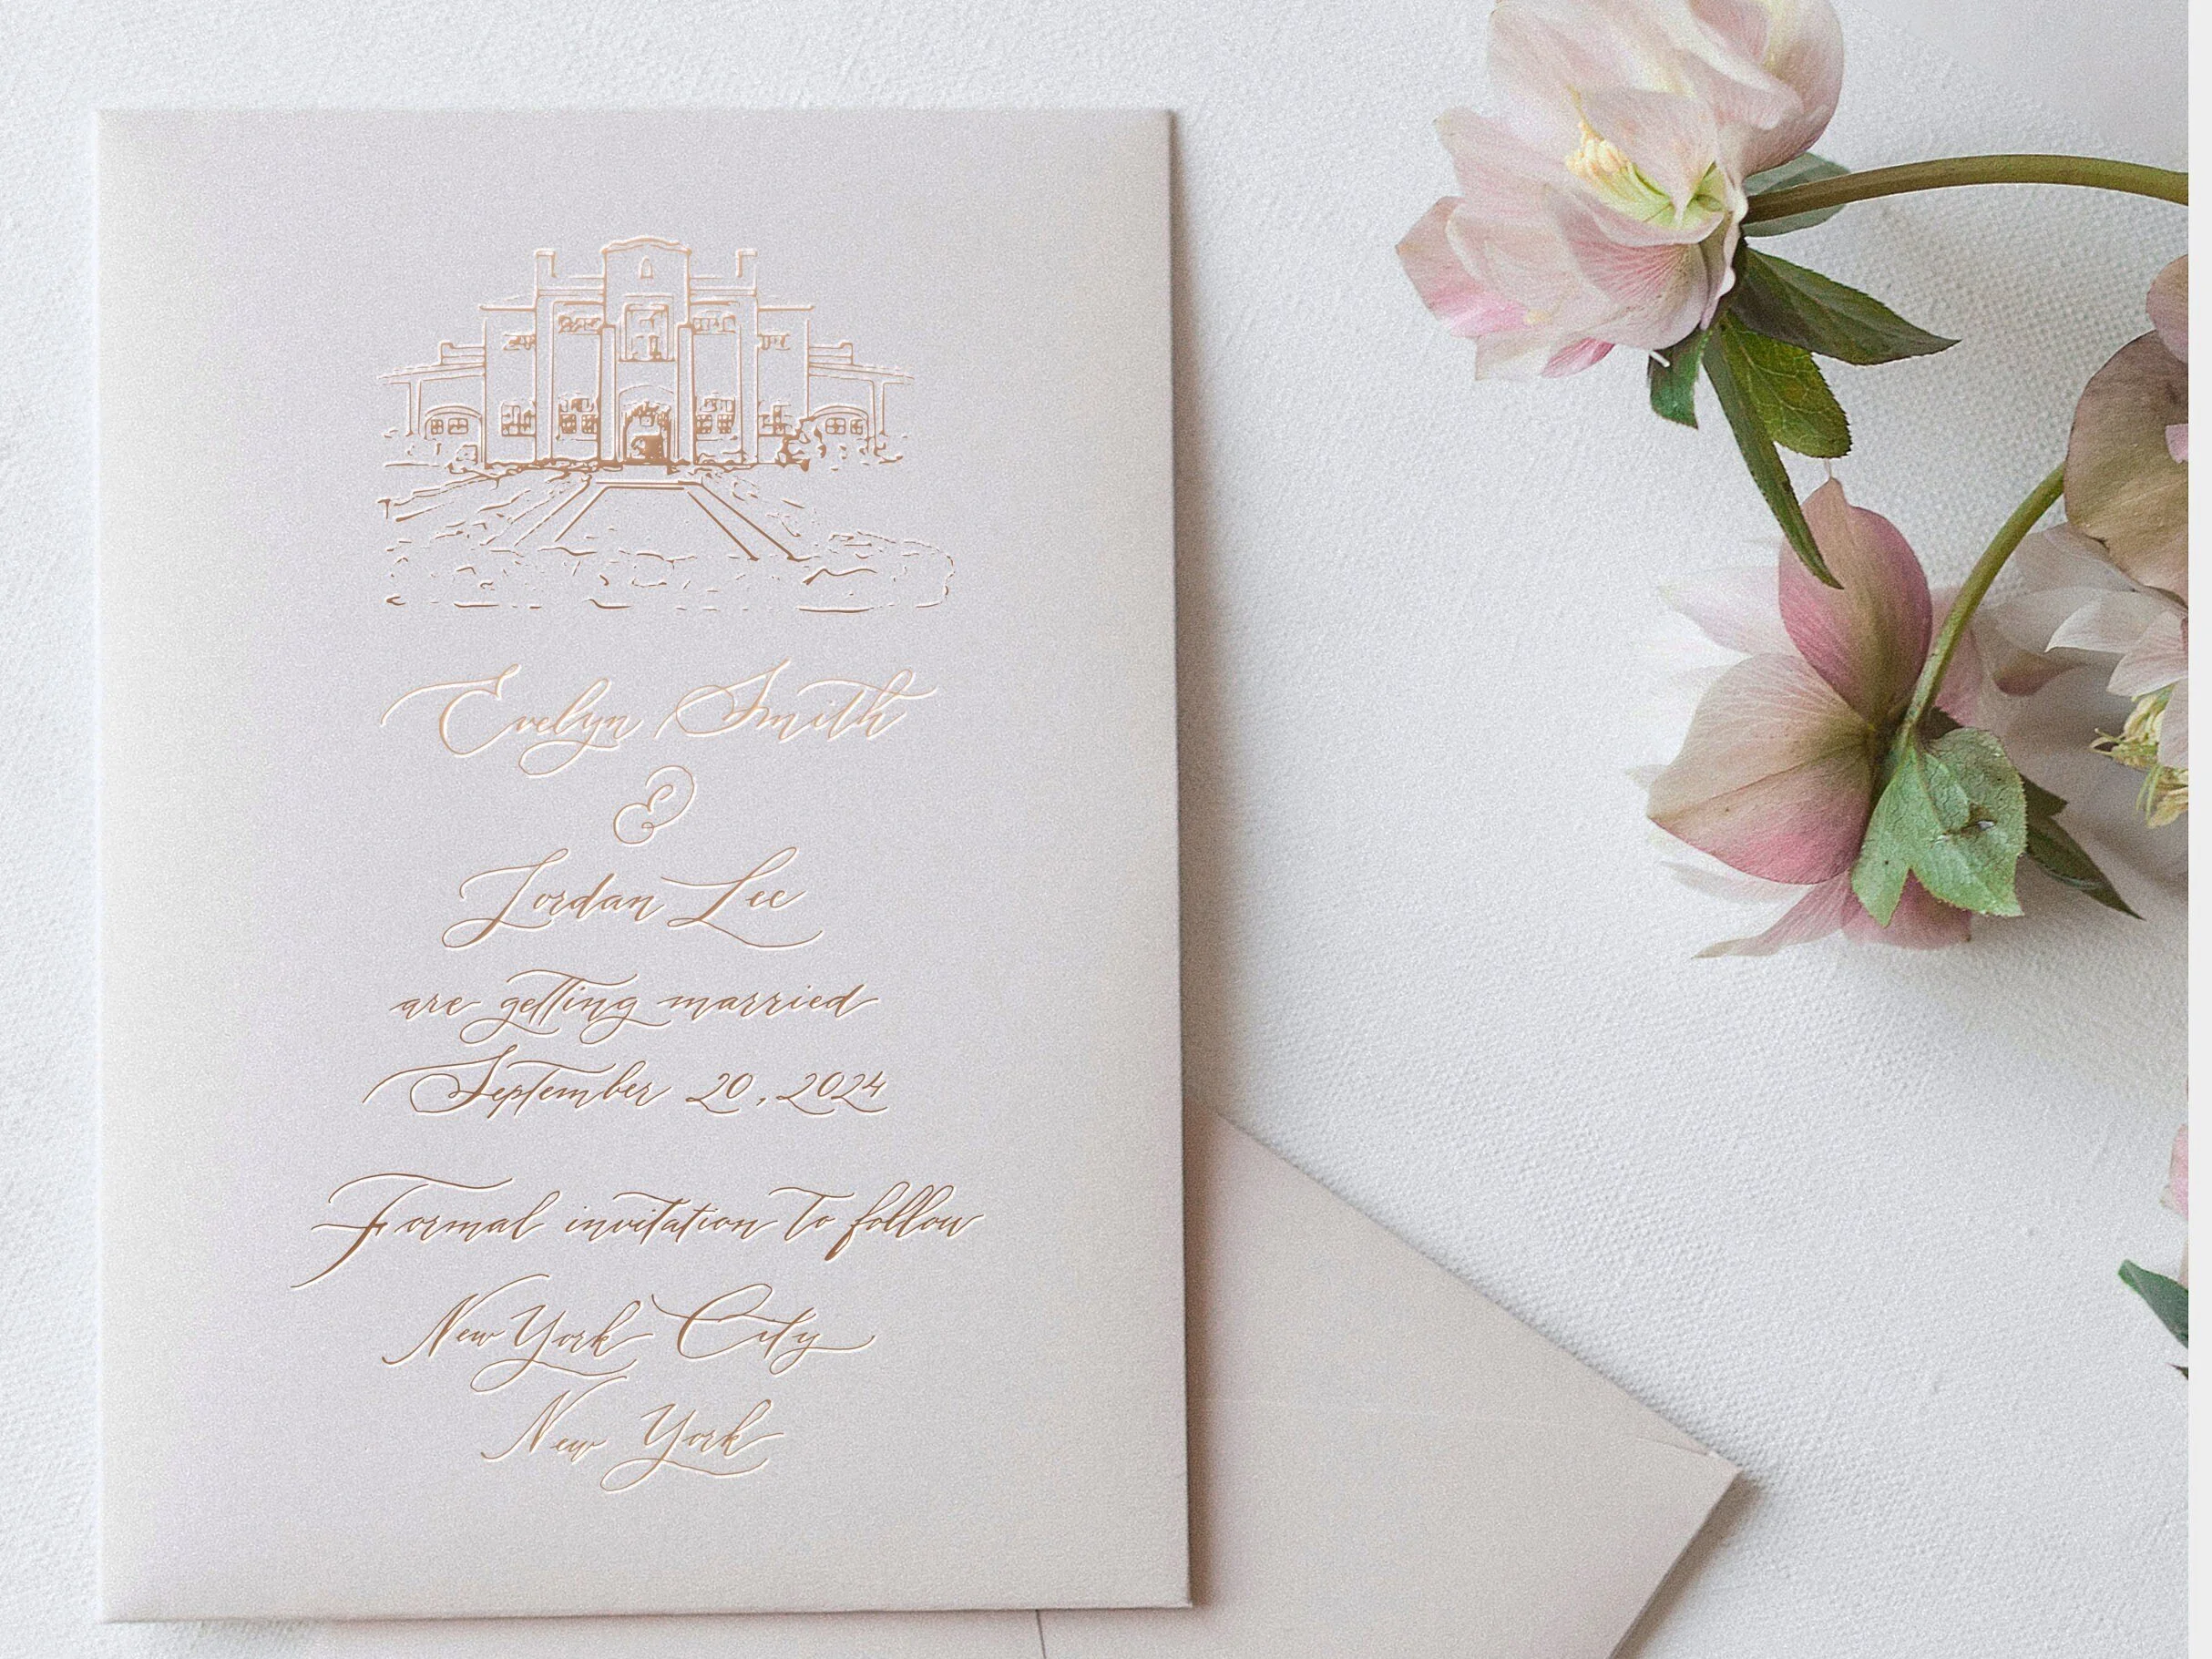 Evelyn Smith
&
Jordan Lee
are getting married
September 20, 2024
Formal invitation to follow
New York City
New York